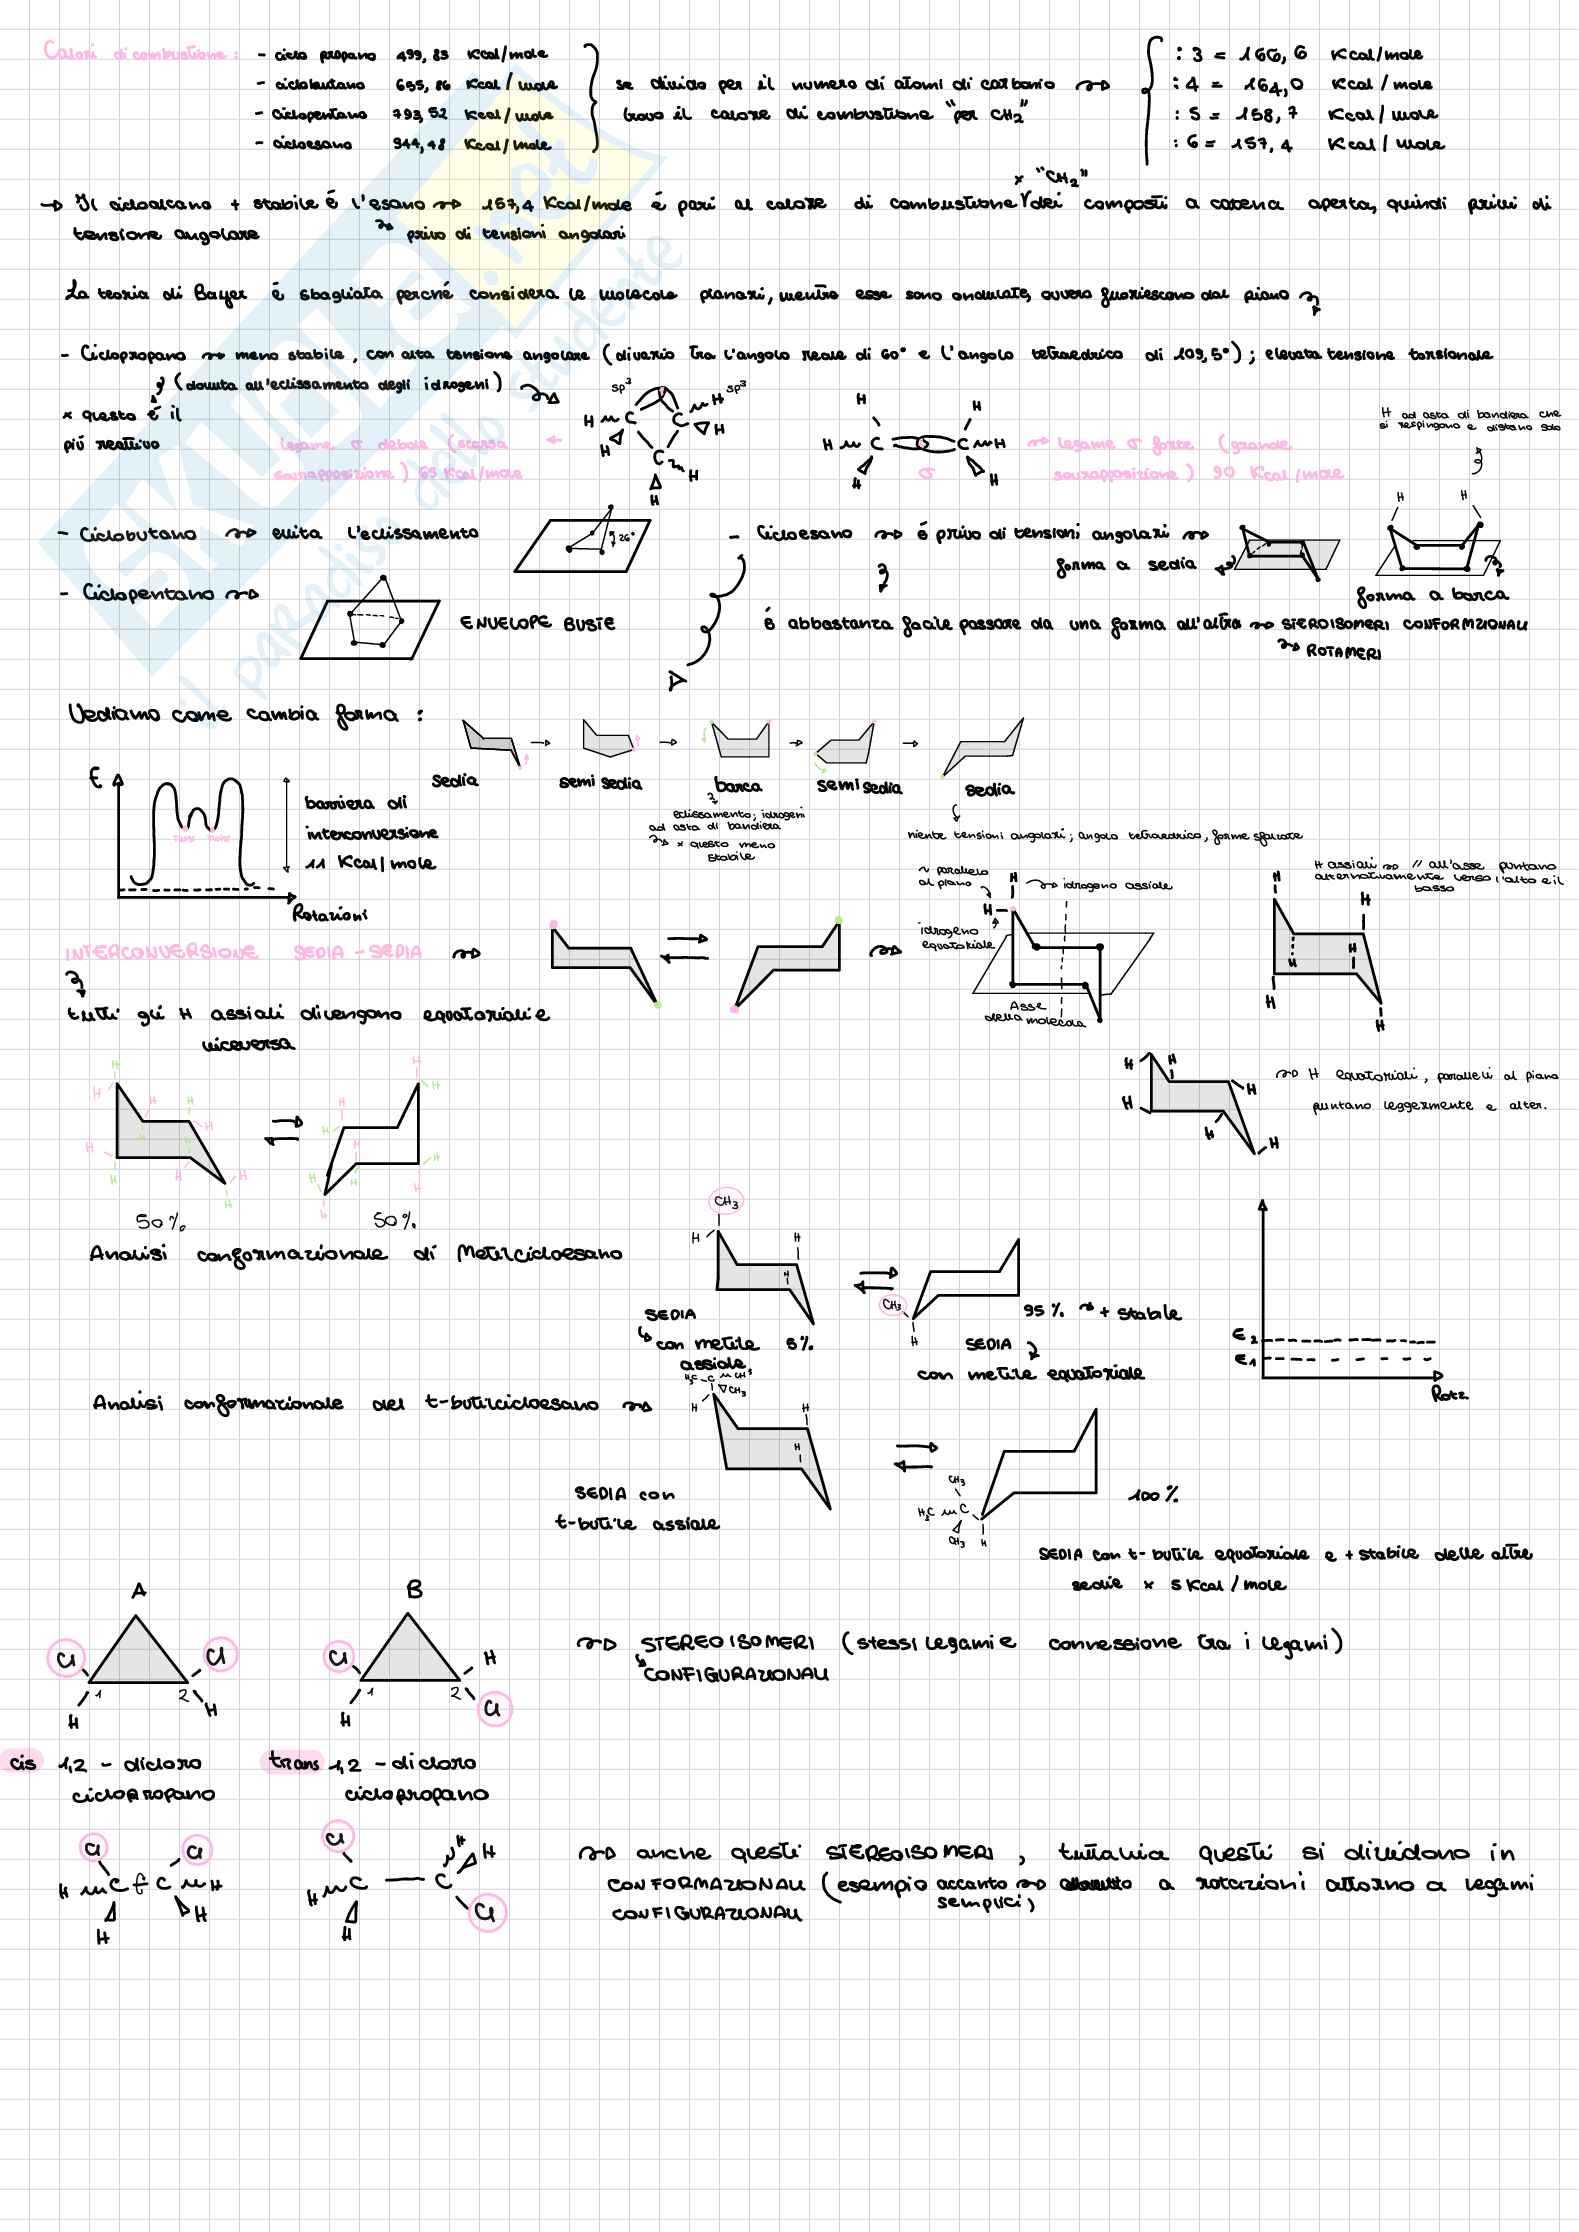 Calori di combustione : - ciclo propano 499,83 Kcal/mole
- ciclobutano 655,86 Kcal/mole
- ciclopentano 793,52 Kcal/mole
- cicloesano 944,48 Kcal/mole
se divido per il numero di atomi di carbonio
trovo il calore di combustione "per CH2"
: 3 = 166,6 Kcal/mole
: 4 = 164,0 Kcal/mole
: 5 = 158,7 Kcal/mole
: 6 = 157,4 Kcal/mole
x "CH2"
→ Il cicloalcano + stabile é l'esano 157,4 Kcal/mole é pari al calore di combustione dei composti a catena aperta, quindi privi di
tensione angolare
privo di tensioni angolari
La teoria di Bayer é sbagliata perché considera le molecole planari, mentre esse sono ondulate, ovvero fuoriescono dal piano
- Ciclopropano meno stabile, con alta tensione angolare (divario tra l'angolo reale di 60° e l'angolo tetraedrico di 109,5°); elevata tensione torsionale
(dovuta all'eclissamento degli idrogeni)
x questo é il
più reattivo
sp3
sp3
H
C
C
H
H
H
C
H
H
legame σ debole (scarsa
sovrapposizione) 65 Kcal/mole
H
H
H
C
C
H
H
H
σ
legame σ forte (grande
sovrapposizione) 90 Kcal/mole
H ad asta di bandiera che
si respingono e distano solo
H
H
- Ciclobutano evita l'eclissamento
26°
- Ciclopentano
ENVELOPE BUSTE
- Cicloesano é privo di tensioni angolari
forma a sedia
forma a barca
É abbastanza facile passare da una forma all'altra STEROISOMERI CONFORMZIONALI
ROTAMERI
Vediamo come cambia forma :
sedia
semi sedia
barca
semi sedia
sedia
eclissamento; idrogeni
ad asta di bandiera
x questo meno
stabile
niente tensioni angolari; angolo tetraedrico, forme sfalsate
E
barriera di
interconversione
11 Kcal/mole
Rotazioni
~ parallelo
al piano
H
H
idrogeno assiale
idrogeno
equatoriale
Asse
della molecola
H assiali // all'asse puntano
alternativamente verso l'alto e il
basso
H
H
H
H
H
H
INTERCONVERSIONE SEDIA - SEDIA
tutti gli H assiali divengono equatoriali e
viceversa
H
H
H
H
H
H
H equatoriali, paralleli al piano
puntano leggermente e alter.
50%
50%
Analisi conformazionale di Metilcicloesano
CH3
H
H
H
SEDIA
con metile 5%
assiale
CH3
H
95% + stabile
SEDIA
con metile equatoriale
E2
E1
Rotz
Analisi conformazionale del t-butilcicloesano
H3C
C
CH3
CH3
H
H
H
SEDIA con
t-butile assiale
CH3
H3C
C
CH3
H
100%
SEDIA con t-butile equatoriale e + stabile delle altre
sedie x 5 Kcal/mole
A
B
Cl
Cl
H
1
2
H
Cl
H
H
1
2
Cl
STEREOISOMERI (stessi legami e connessione tra i legami)
CONFIGURAZIONALI
cis 1,2 - dicloro
ciclopropano
trans 1,2 - dicloro
ciclopropano
Cl
Cl
H
C
C
H
H
H
Cl
H
H
H
C
C
H
Cl
anche questi STEREOISOMERI, tuttavia questi si dividono in
CONFORMAZIONALI (esempio accanto a rotazioni attorno a legami
semplici)
CONFIGURAZIONALI
SKUOLA.net
il paradiso dello studente